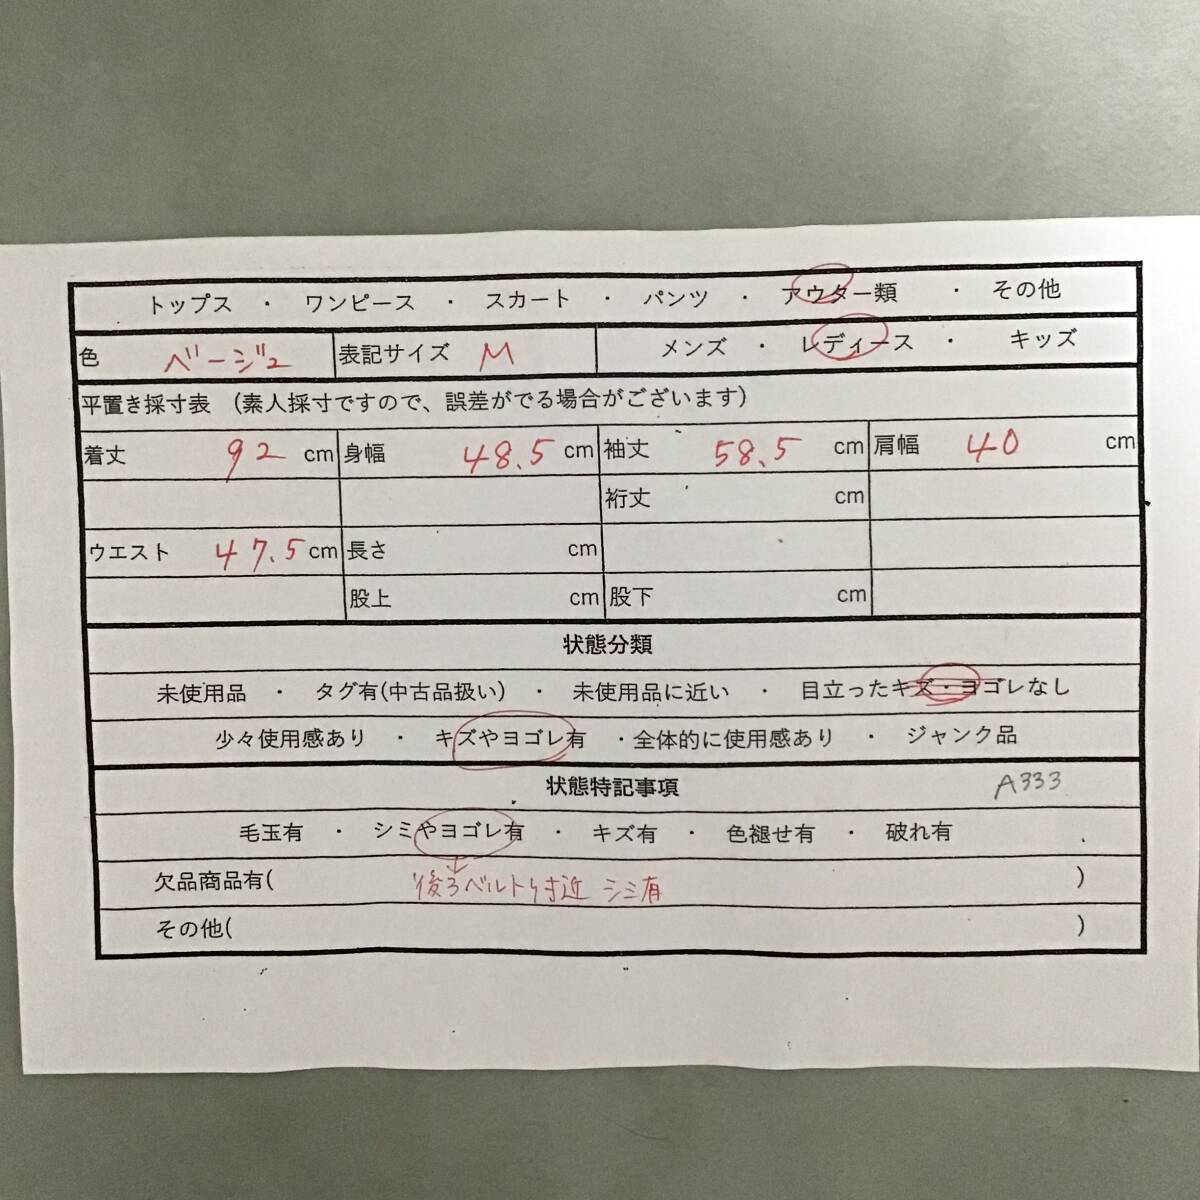 トップス ・ ワンピース ・ スカート ・ パンツ ・ アウター類 ・ その他
色 ベージュ 表記サイズ M メンズ ・ レディース ・ キッズ
平置き採寸表 (素人採寸ですので、誤差がでる場合がございます)
着丈 92 cm 身幅 48.5 cm 袖丈 58.5 cm 肩幅 40 cm
裄丈 cm
ウエスト 47.5 cm 長さ cm
股上 cm 股下 cm
状態分類
未使用品 ・ タグ有(中古品扱い) ・ 未使用品に近い ・ 目立ったキズ・ヨゴレなし
少々使用感あり ・ キズやヨゴレ有 ・全体的に使用感あり ・ ジャンク品
状態特記事項 A333
毛玉有 ・ シミやヨゴレ有 ・ キズ有 ・ 色褪せ有 ・ 破れ有
欠品商品有( 後ろベルト付近 シミ有 )
その他( )